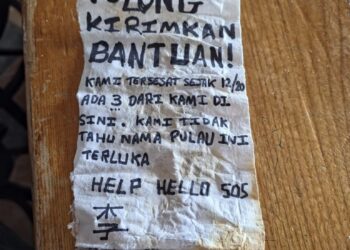 TOLONG
KIRIMKAN
BANTUAN!
KAMI TERSESAT SEJAK 12/20
ADA 3 DARI KAMI DI
SINI. KAMI TIDAK
TAHU NAMA PULAU INI
TERLUKA
HELP HELLO SOS